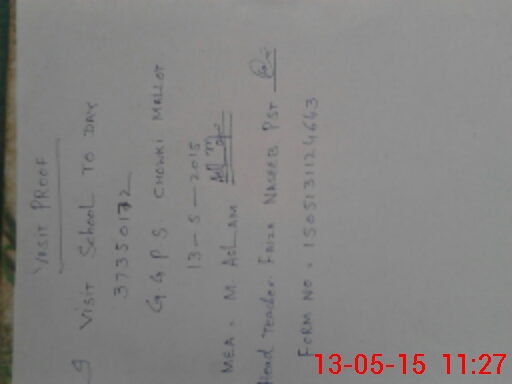 VISIT PROOF
I VISIT SCHOOL TO DAY
37350172
G.G P S CHOWKI MALLOT
13-5-2015
MEA. M ASLAM
Head Teacher. FAIZA NASEEB PST
FORM NO. 1505131124643
13-05-15 11:27